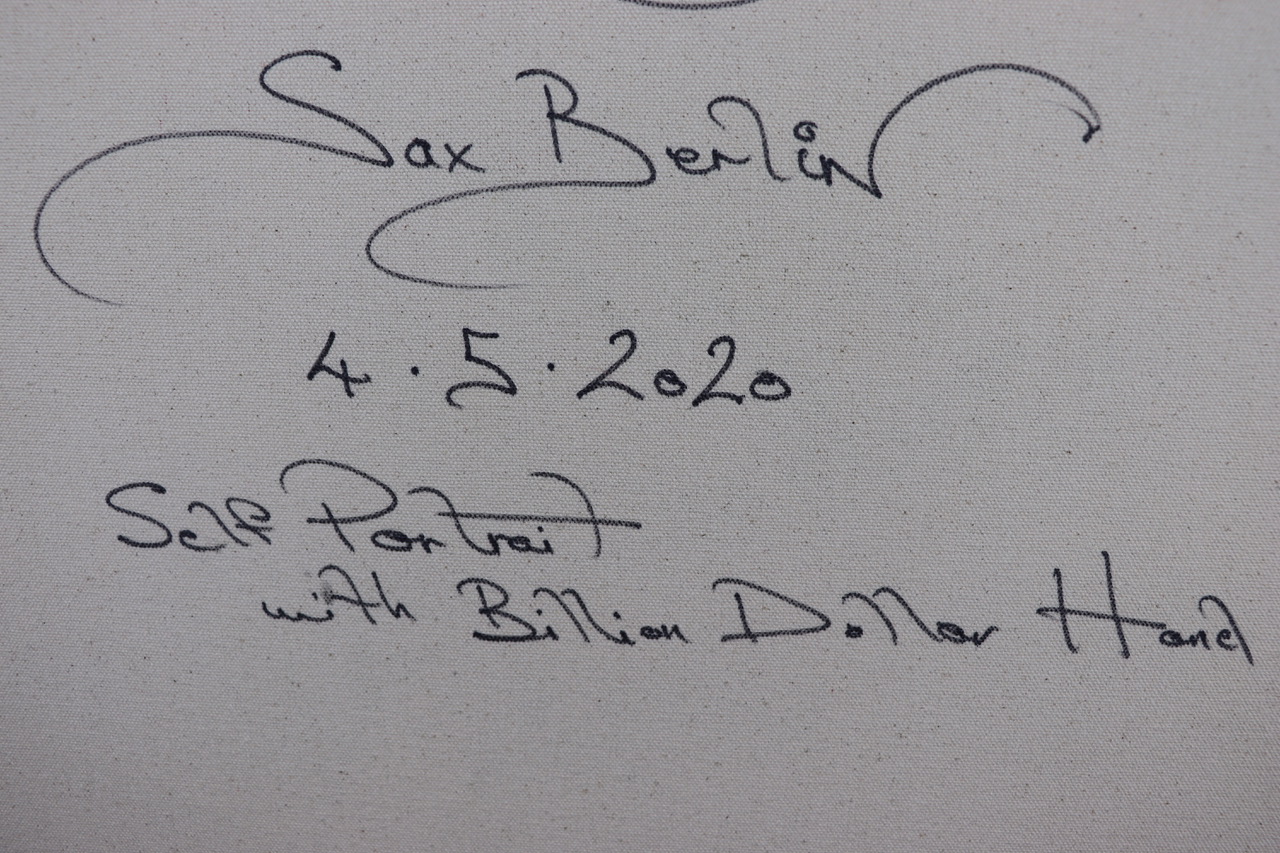 Sax Berlin
4.5.2020
Self Portrait
with Billion Dollar Hand